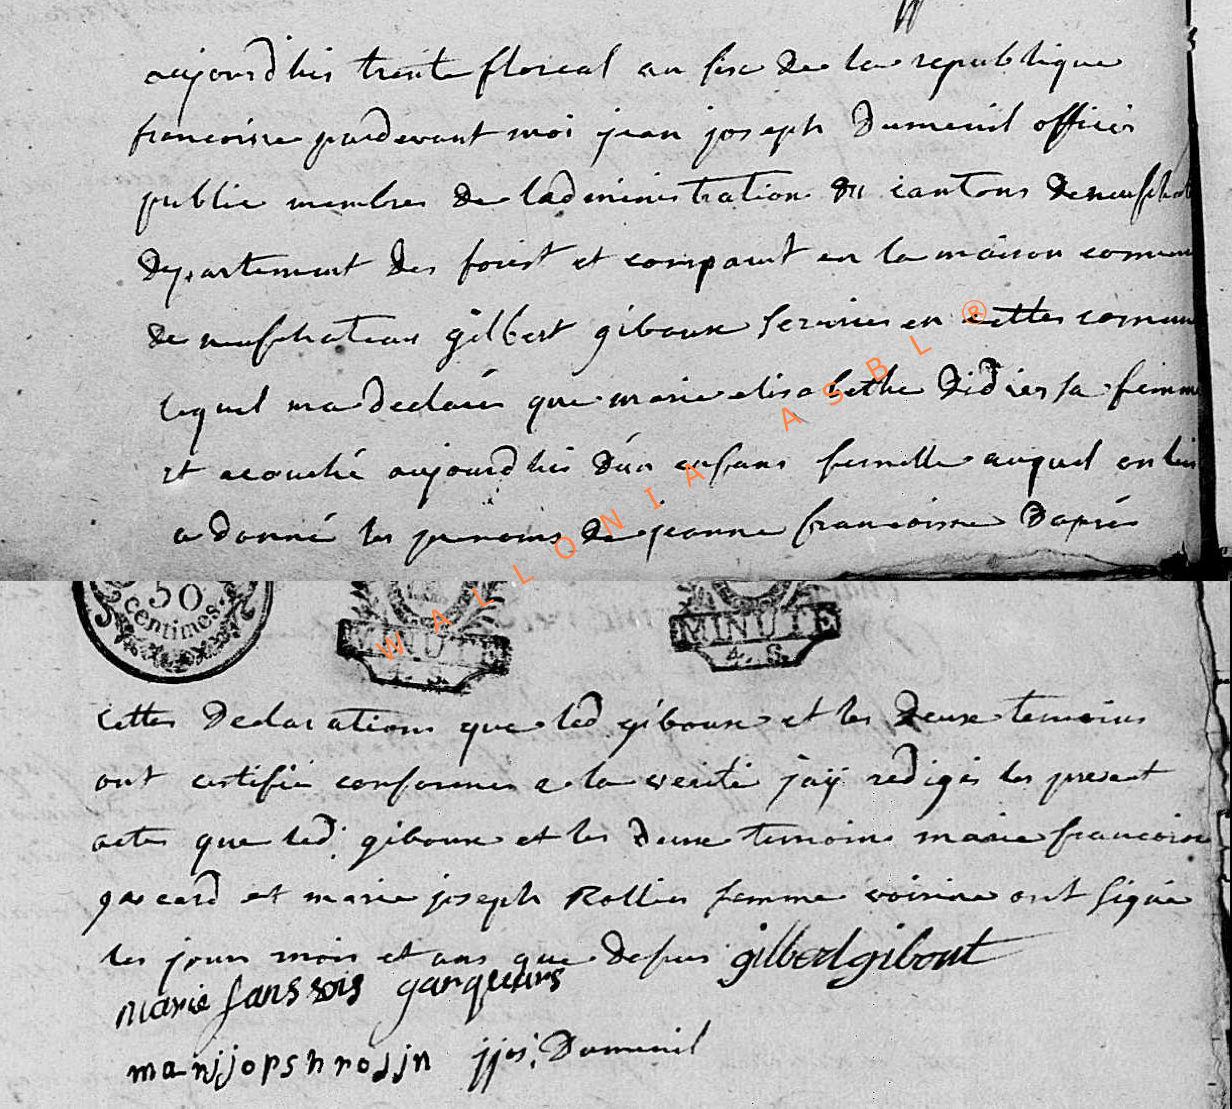 aujourd'huis trente floreal an sise de la republique
francoisse pardevant moi jean joseph Dumenil officiér
public membres de ladministration du cantons de neufchat
departement des forest et comparut en la maison commun
de neufchateau gilbert giboux serurier en cettes commun
lequel ma declarér que marie elisabethe Didier sa femme
et acouché aujourdhis d'un enfans femelle auquel on lui
a donné les prenoms de jeanne francoisse D'aprés
50
centimes
MINUTE
4. S.
MINUTE
4. S.
cettes declarations que led giboux et les deux temoins
ont certifié conformes a la verité j'aÿ redigér les present
actes que led. giboux et les deux temoins marie francoisse
et marie joseph Rollin femme voisine ont signé
les jours mois et ans que desus gilbert gibout
marie fanssois
marijjopsh rosjn jjos. Dumenil
WALLONIA ASBL ®